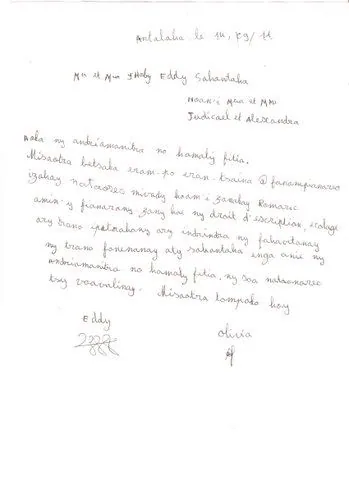 Antalaha le 14, 09/11
Mr et Mme JHoby Eddy Sahantaha
Hoan'i Mr et Mme
Judicael et Alexandra
Aoka ny andriamanitra no hamaly fitia.
Misaotra betsaka eram-po eran-tsaina @ fanampianareo
izahay nataoreo mivady hoam'i zanakay Romaric
amin'ny fianarany zany hoe ny droit d'escription, ecolage
ary trano ipetrahany ary indrindra ny fahavitanay
ny trano fonenanay aty sahantaha enga anie ny
Andriamanitra no hamaly fitia, ny soa nataonareo
tsy voavalinay. Misaotra tompoko hoy
Eddy
olivia